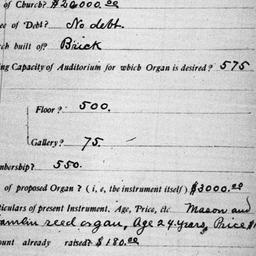 of Church? $20000.00
of Debt? No debt.
built of? Brick
Capacity of Auditorium for which Organ is desired? 575
Floor? 500.
Gallery? 75.
550.
of proposed Organ? (i, e, the instrument itself) $3000.00
of present Instrument. Age, Price, etc Mason and
reed organ, Age 24 years, Price
already raised? $180.00